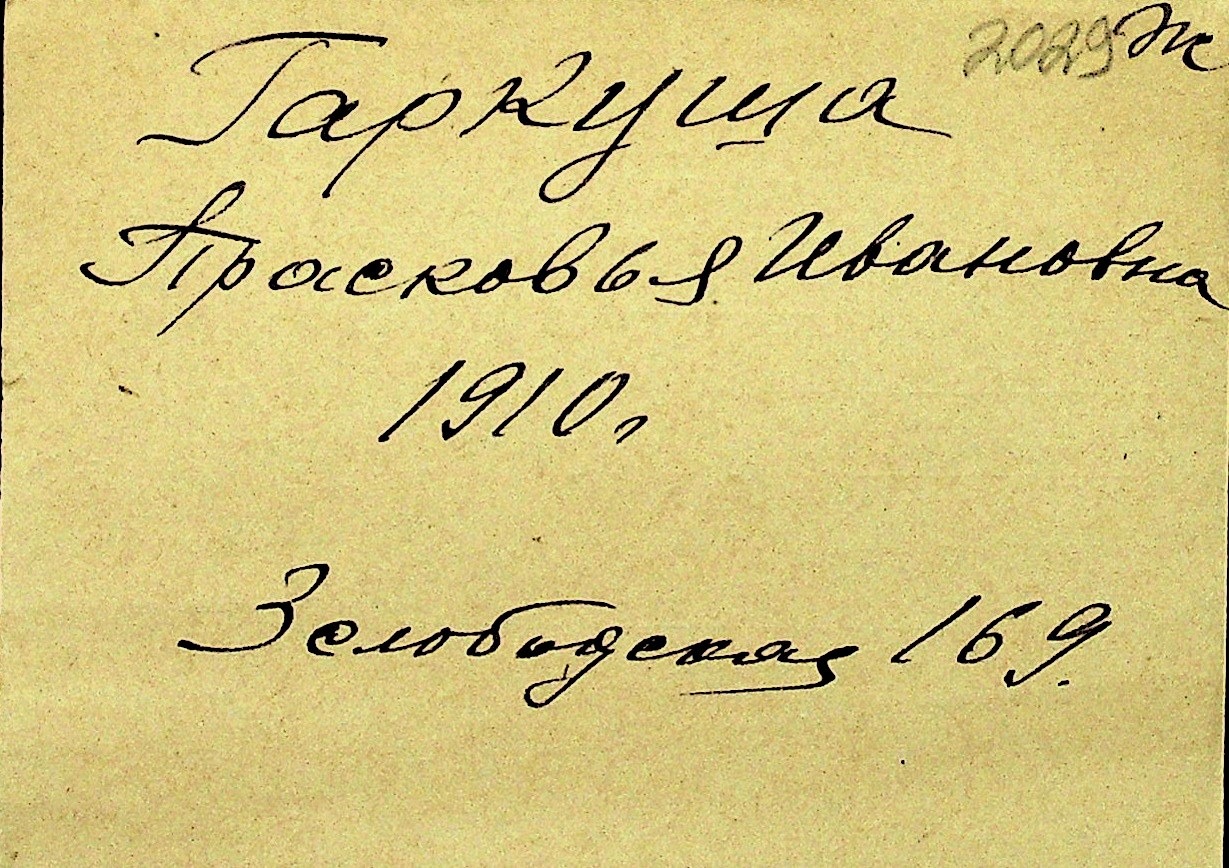 2029 ж
Гаркуша
Прасковья Ивановна
1910г
3 слободская 169.